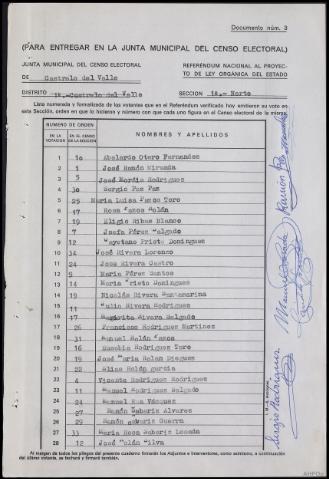 Documento núm. 3
(PARA ENTREGAR EN LA JUNTA MUNICIPAL DEL CENSO ELECTORAL)
JUNTA MUNICIPAL DEL CENSO ELECTORAL
DE Castrelo del Valle
REFERÉNDUM NACIONAL AL PROYECTO DE LEY ORGÁNICA DEL ESTADO
DISTRITO 1º.-Castrelo del Valle SECCION 1ª.- Norte
Lista numerada y formalizada de los votantes que en el Referéndum verificado hoy emitieron su voto en
esta Sección, orden en que lo hicieron y número con que cada uno figura en el Censo electoral de la misma.
NUMERO DE ORDEN
EN LA VOTACION
EN EL CENSO DE LA SECCION
NOMBRES Y APELLIDOS
1 10 Abelardo Otero Fernandez
2 1 José Román Miranda
3 5 José Rodríguez
4 30 Sergio Paz Paz
5 25 Maria Luisa Toro
6 17 Rosa
7 19 Eligio Ribas Blanco
8 7 Josefa Pérez
9 12 Cayetano Prieto Dominguez
10 34 José Rivera Lorenzo
11 24 Jose Rivera Castro
12 5 Maria Pérez Santos
13 14 Maria Prieto Dominguez
14 19 Nicolás Rivera Santamarina
15 11 Julio Rivera Marquez
16 17 Rivera Delgado
17 26 Francisco Rodriguez Martinez
18 31 Manuel
19 16 Eusebio Rodriguez Toro
20 19 José Maria Rolan Dieguez
21 22 Elisa García
22 4 Vicente Rodriguez Rodriguez
23 11 Manuel Rodriguez Salgado
24 24 Manuel Rua Vázquez
25 27 Ramón Taboris Alvarez
26 29 Ramón Guerra
27 33 Maria Rosa Losada
28 12 José Silva
Al margen de todos los pliegos del presente cuaderno firmarán los Adjuntos e Interventores, como asimismo, a continuación
del último votante, se fechará y firmará también.
Sergio Rodriguez
AHPOu